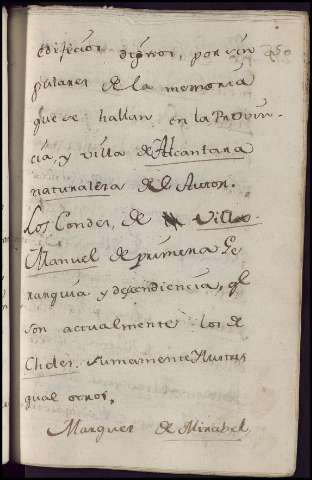 edificios dignos, por sin
gulares de la memoria
que se hallan en la Provin-
cia, y villa de Alcantara
naturaleza del Autor.
Los Condes, de Villa-
Manuel de primera Ge
rarquia y dependiencia, ql
son actualmente los de
Cheles. sumamente Ilustres
qual otros,
Marques de Mirabel